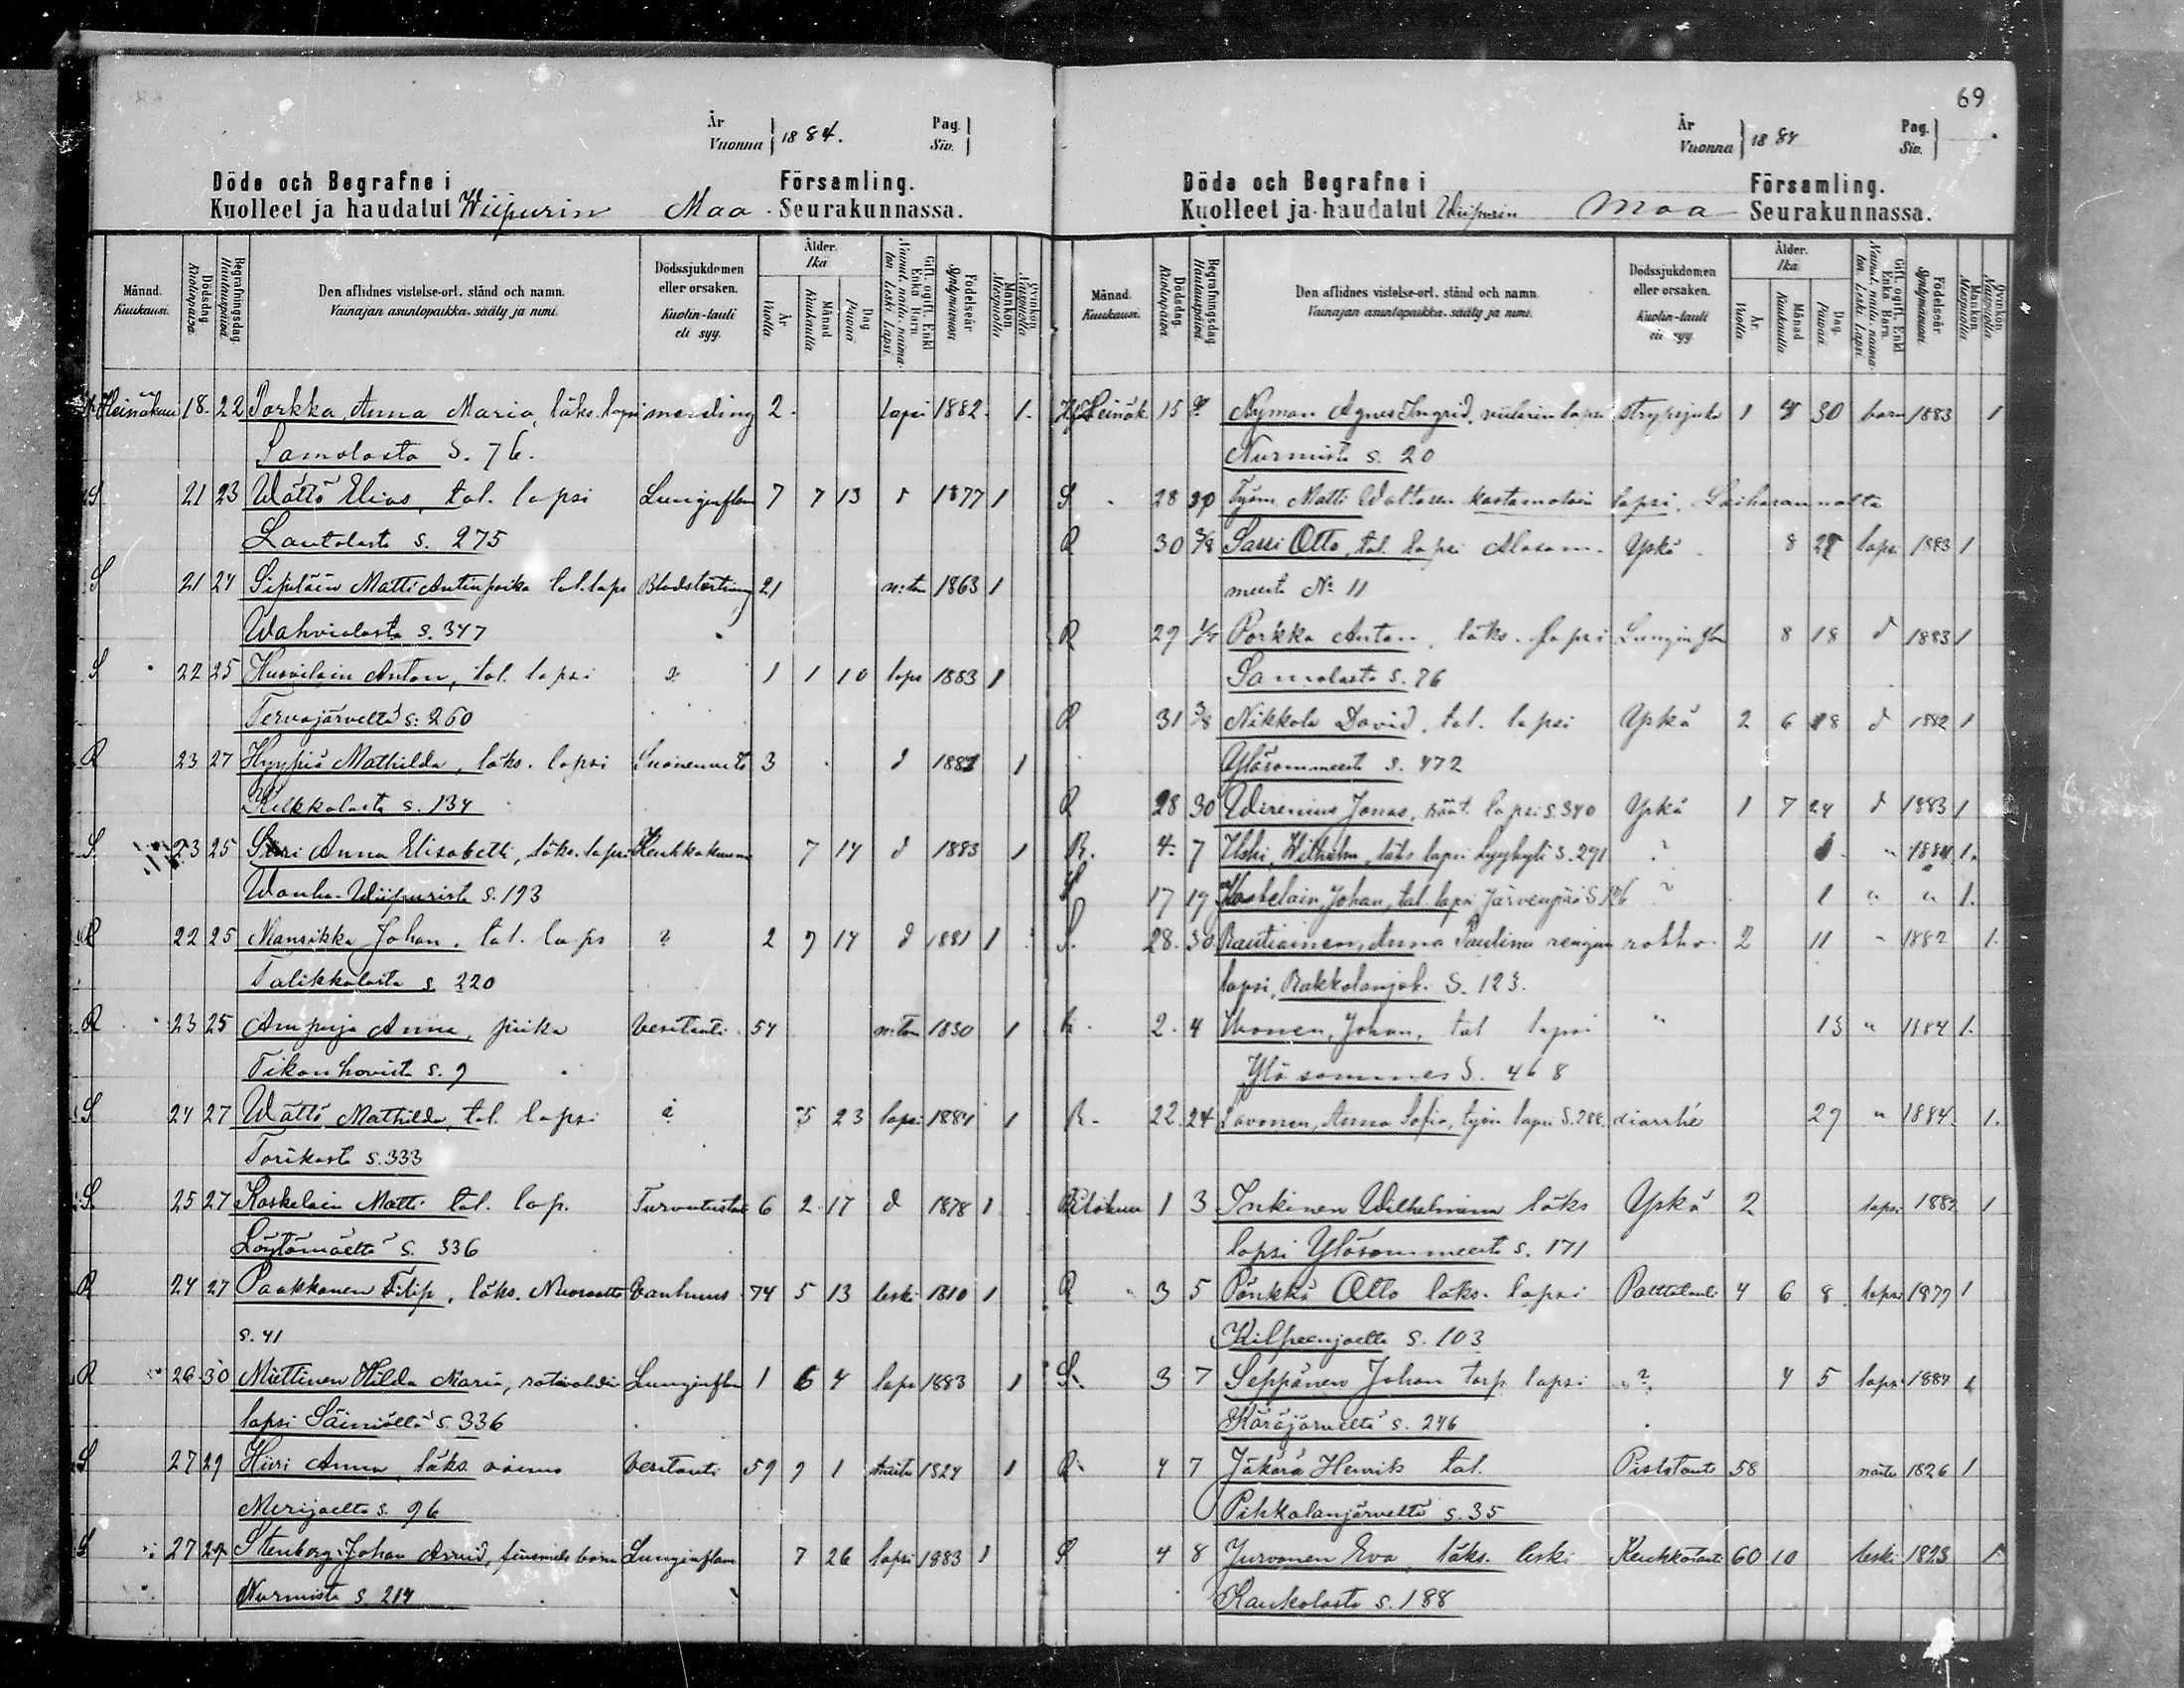 År
Vuonna 1884.
Pag.
Siv.
Döde och Begrafne i Församling.
Kuolleet ja haudatut Wiipurin Maa Seurakunnassa.
Månad. Kuukausi. Dödsdag. Kuolinpäivä. Begrafningsdag. Hautauspäivä. Den aflidnes vistelse-ort. stånd och namn. Vainajan asuntopaikka. sääty ja nimi. Dödssjukdomen eller orsaken. Kuolin-tauti eli syy. Ålder. Ikä År. Vuotta Månad Kuukautta Dag. Päivää Gift. ogift. Enkl. Enka Barn. Nainut. naitu. naimaton. Leski. Lapsi. Födelseår. Syntymävuosi Mankön. Miespuolta Qvinkön. Vaispuolta
Heinäkuu 18. 22 Porkka, Anna Maria, läks. lapsi messling 2. lapsi 1882. 1.
Samolasta S. 76.
S 21 23 Wättö Elias, tal. lapsi Lunginflam 7 7 13 d 1877 1
Lautolasta s. 275
S 21 24 Sipiläin Matti Antinpoika tal. laps Blodstörtning 21 n:ton 1863 1
Wahvialasta s. 347
S 22 25 Husvilain Anton, tal. lapsi ? 1 1 10 laps 1883 1
Tervajärveltä s: 260
R 23 27 Hyypiä Mathilda, läks. lapsi Suonenveto 3 d 1881 1
Kilkkalasta s. 134
S. 23 25 Anna Elisabetti, läks. lapsi Keuhkokuume 7 14 d 1883 1
Wanha-Wiipurista s. 193
R 22 25 Mansikka Johan. tal. laps ? 2 9 14 d 1881 1
Talikkalasta s 220
R 23 25 Ampuja Anna, piika Vesitauti 54 n:ton 1830 1
Tikanhovista s. 9
S 24 27 Wättö, Mathilda, tal. lapsi ? 5 23 lapsi 1884 1
Torikasta s. 333
S. 25 27 Koskelain Matti tal. lap. Turvutustauti 6 2 17 d 1878 1
Löytömäeltä s. 336
R 24 27 Paakkanen Filip, läks. Nuoraalta Vanhuus 74 5 13 leski 1810 1
s. 41
R 26 30 Miettinen Hilda Maria, ratavahdin Lunginflam 1 6 4 laps 1883 1
lapsi Säiniöltä s. 336
S 27 29 Hiiri Anna, läks. vaimo Vesitauti 59 9 1 naitu 1824 1
Merijoelta s. 96
S 27 29 Stenberg Johan Arvid, barn Lunginflam 7 26 lapsi 1883 1
Nurmista s. 214
69
År
Vuonna 1884
Pag.
Siv.
Döde och Begrafne i Församling.
Kuolleet ja haudatut Wiipurin Maa Seurakunnassa.
Månad. Kuukausi. Dödsdag. Kuolinpäivä. Begrafningsdag Hautauspäivä Den aflidnes vistelse-ort. stånd och namn. Vainajan asuntopaikka. sääty ja nimi. Dödssjukdomen eller orsaken. Kuolin-tauti eli syy. Ålder. Ikä År. Vuotta Månad Kuukautta Dag. Päivää Gift. ogift. Enkl. Enka Barn. Nainut. naitu. naimaton. Leski. Lapsi. Födelseår. Syntymävuosi Mankön. Miespuolta Qvinkön. Vaispuolta
Heinäk. 15 Nyman Agnes Ingrid, viilarin lapsi strypsjuka 1 30 barn 1883 1
Nurmista s. 20
S 28 30 Työm. Matti Waltasen kastamatoin lapsi. Laiharannalta
R 30 3/8 Sassi Otto, tal. lapsi Alasom- Yskä 8 lapsi 1883 1
meesta No 11
R 29 1/8 Porkka Anton, läks. lapsi Lunginflam 8 18 d 1883 1
Samolasta s. 76
R 31 3/8 Nikkola David, tal. lapsi Yskä 2 6 18 d 1882 1
Yläsommeesta s. 472
R 28 30 Wirenius Jonas, räät. lapsi s. 340 Yskä 1 7 24 d 1883 1
R. 4. 7 Ilski, Wilhelm, läks. lapsi Lyykylä S. 291 ? " 1884 1.
S 17 19 Koskelain, Johan, tal. lapsi Järvenpää S. 106 ? 1 " " 1.
S. 28. 30 Rautiainen, Anna Paulina rengin rokko. 2 11 " 1882 1.
lapsi, Rakkolanjok. S. 123.
R. 2. 4 Ihonen, Johan, tal lapsi " 13 " 1884 1.
Ylä sommes S. 468
R. 22. 24 Lavonen, Anna Sofia, työm lapsi S. 288. diarrhé 29 " 1884. 1.
Elokuu 1 3 Inkinen Wilhelmina läks Yskä 2 lapsi 1882 1
lapsi Yläsommeesta s. 171
R 3 5 Pönkkä Otto läks. lapsi 4 6 8 lapsi 1879 1
Kilpeenjoelta s. 103
S. 3 7 Seppänen Johan torp. lapsi ? 4 5 lapsi 1884 1
Käräjärveltä s. 246
R 4 7 Jäkärä Henrik tal. Pistotauti 58 naitu 1826 1
Pihkalanjärveltä s. 35
S 4 8 Jurvanen Eva läks. leski Keuhkotauti 60 10 leski 1823 1
Kaukolasta s. 188